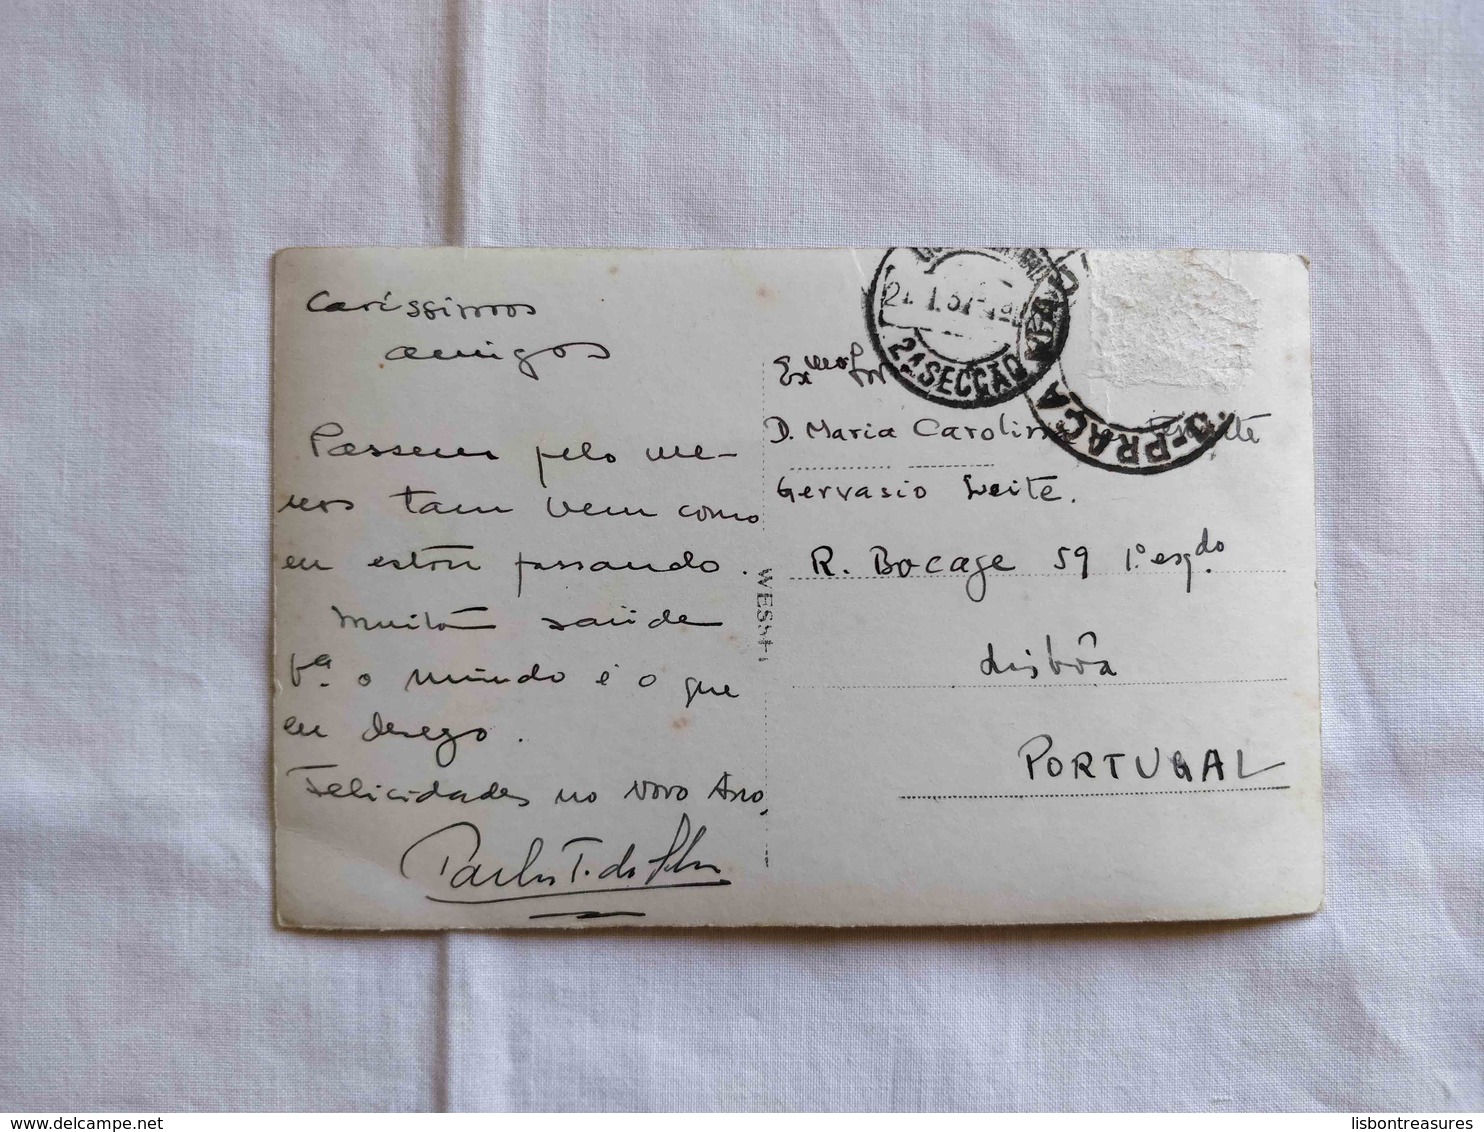 Caríssimos
amigos
Passem pelo me-
nos tam bem como
eu estou passando.
Muita saúde
pª o mundo é o que
eu desejo.
Felicidades no Novo Ano,
WESSEL
2ª SECÇÃO
PRAÇA
Exmos
D. Maria Carolin Leite
Gervasio Leite.
R. Bocage 59 1º esqdo
Lisbôa
PORTUGAL
delcampe.net
lisbontreasures